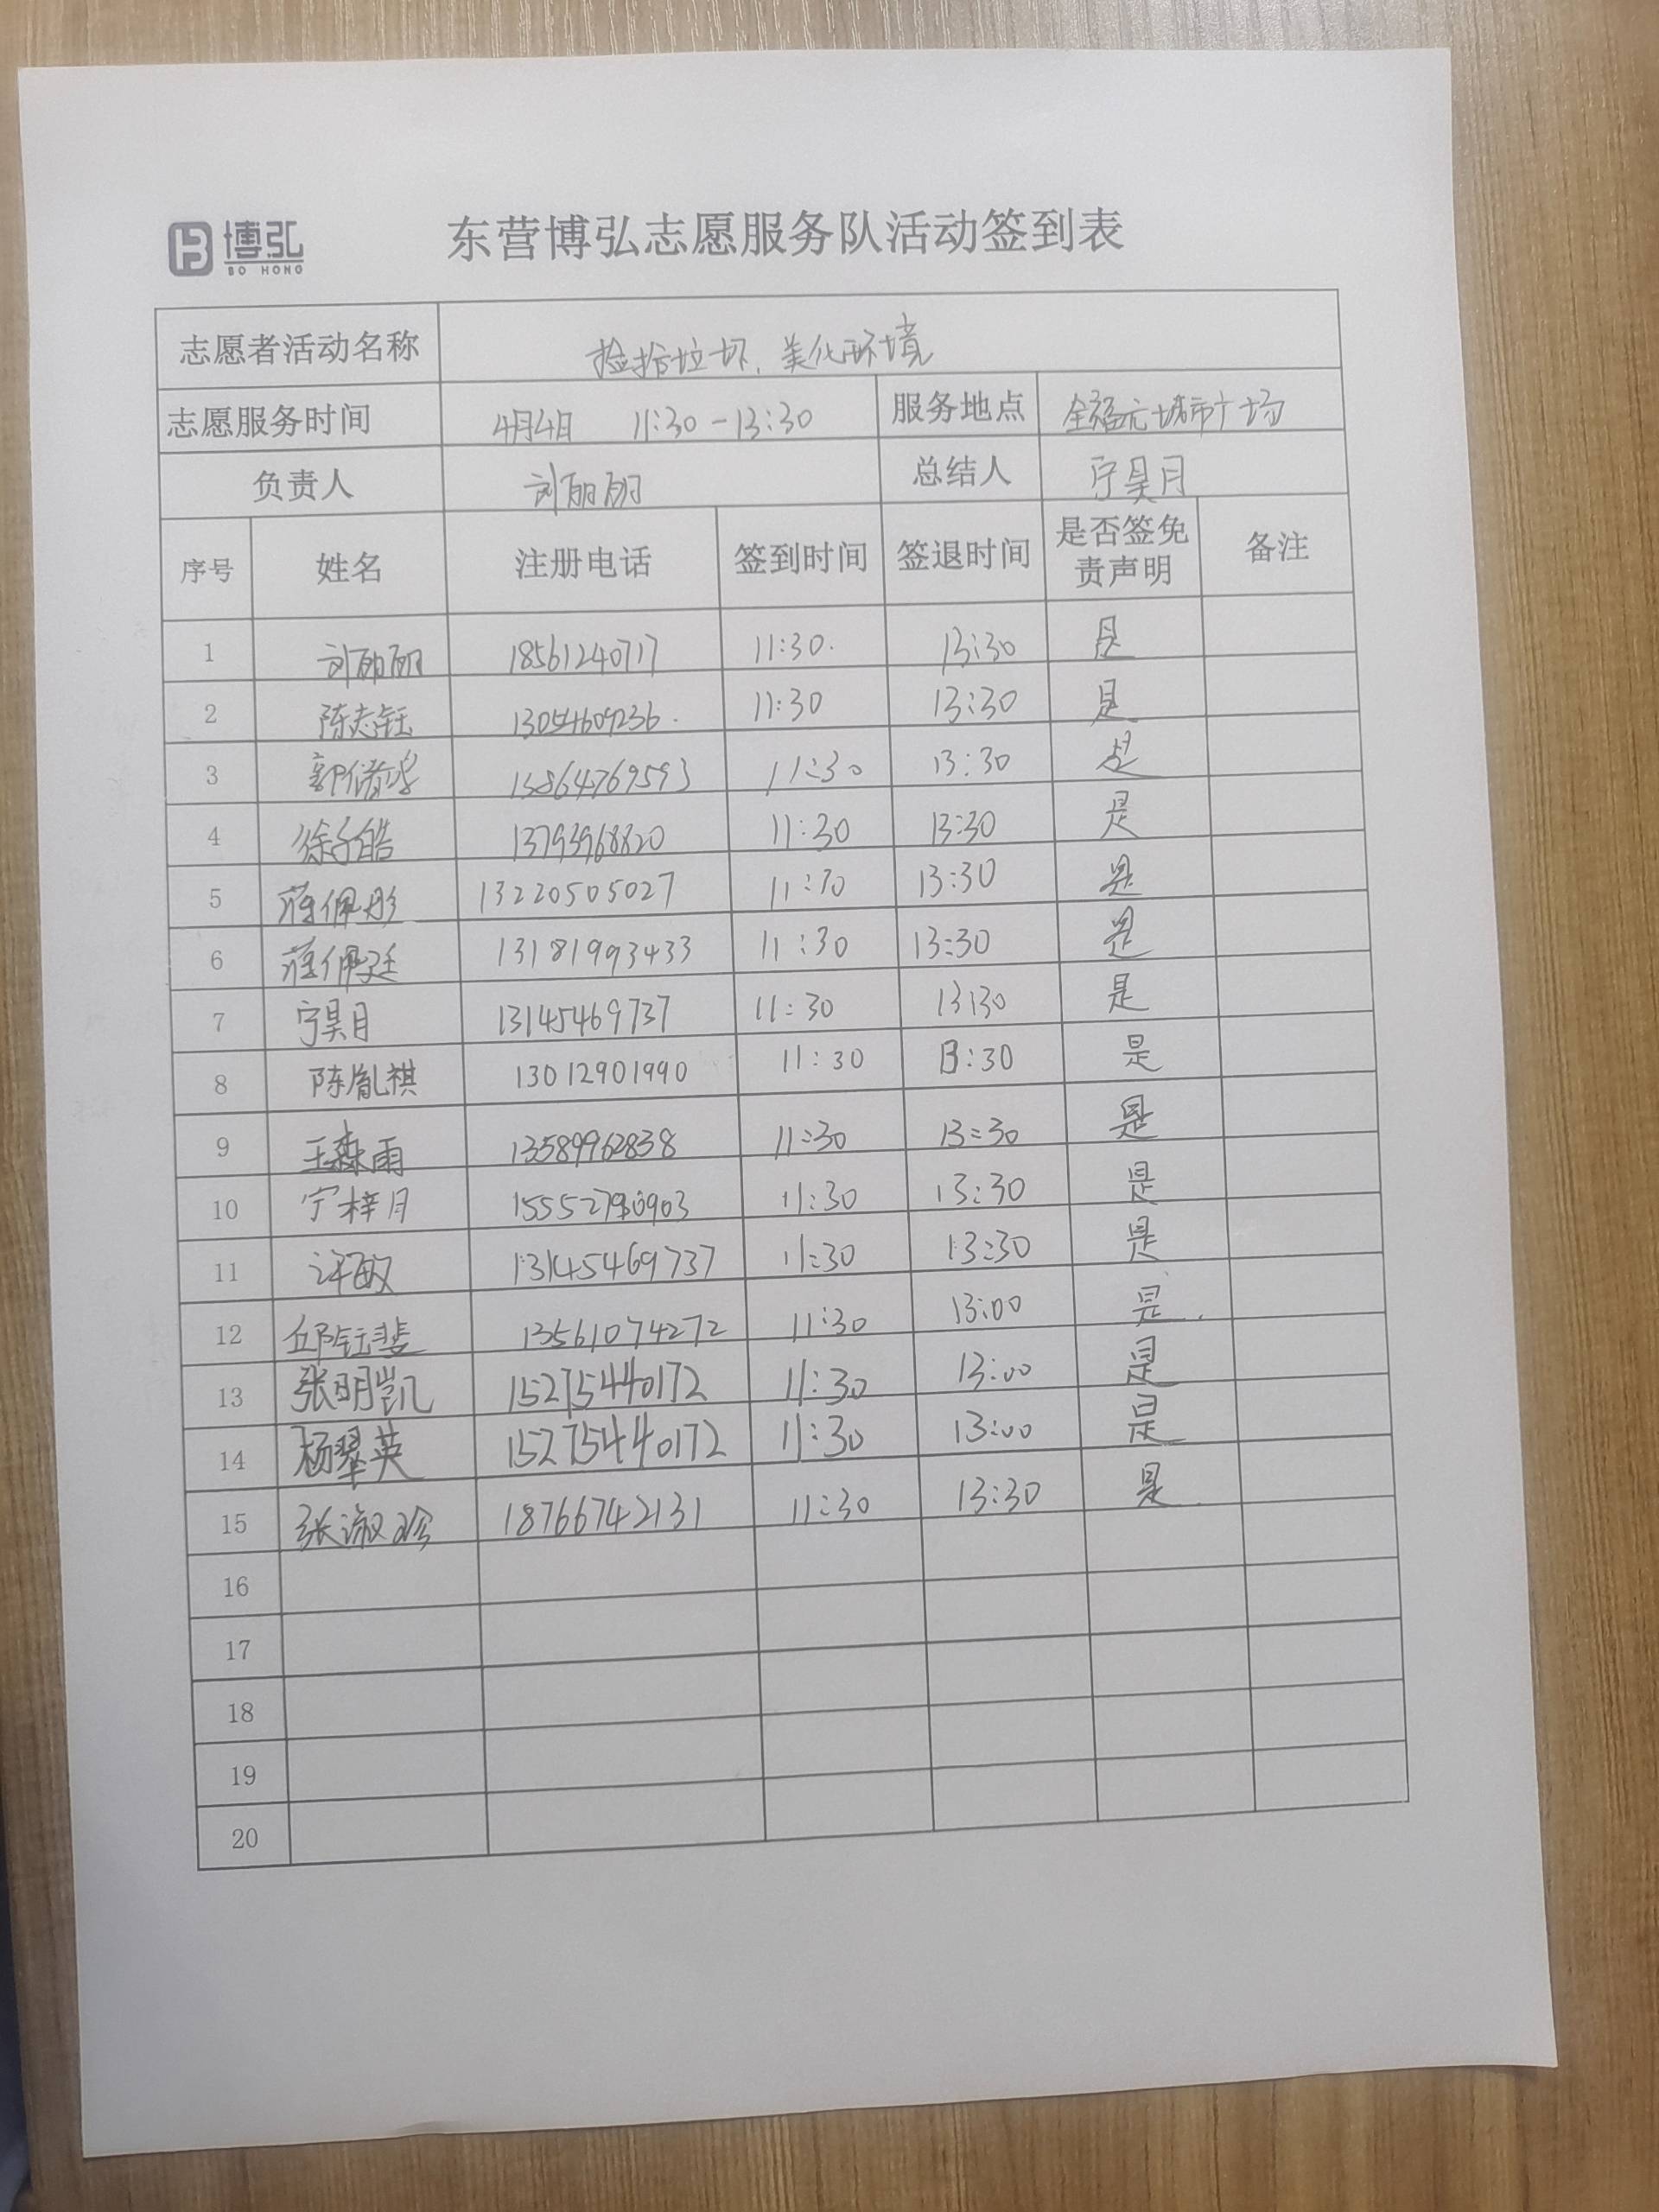 博弘
BO HONG
东营博弘志愿服务队活动签到表
志愿者活动名称 捡拾垃圾、美化环境
志愿服务时间 4月4日 11:30-13:30 服务地点 全福元城市广场
负责人 刘丽丽 总结人 宁昊月
序号 姓名 注册电话 签到时间 签退时间 是否签免责声明 备注
1 刘丽丽 18561240717 11:30. 13:30 是
2 陈志钰 13054609236. 11:30 13:30 是
3 15864769593 11:30 13:30 是
4 徐子皓 13793968820 11:30 13:30 是
5 蒋佩彤 13220505027 11:30 13:30 是
6 蒋佩廷 13181993433 11:30 13:30 是
7 宁昊月 13145469737 11:30 13:30 是
8 陈胤祺 13012901990 11:30 13:30 是
9 王森雨 13589962838 11:30 13:30 是
10 宁梓月 11:30 13:30 是
11 许敏 13145469737 11:30 13:30 是
12 邱钰斐 13561074272 11:30 13:00 是.
13 张明凯 15275440172 11:30 13:00 是
14 杨翠英 15275440172 11:30 13:00 是
15 张淑珍 18766742131 11:30 13:30 是
16
17
18
19
20